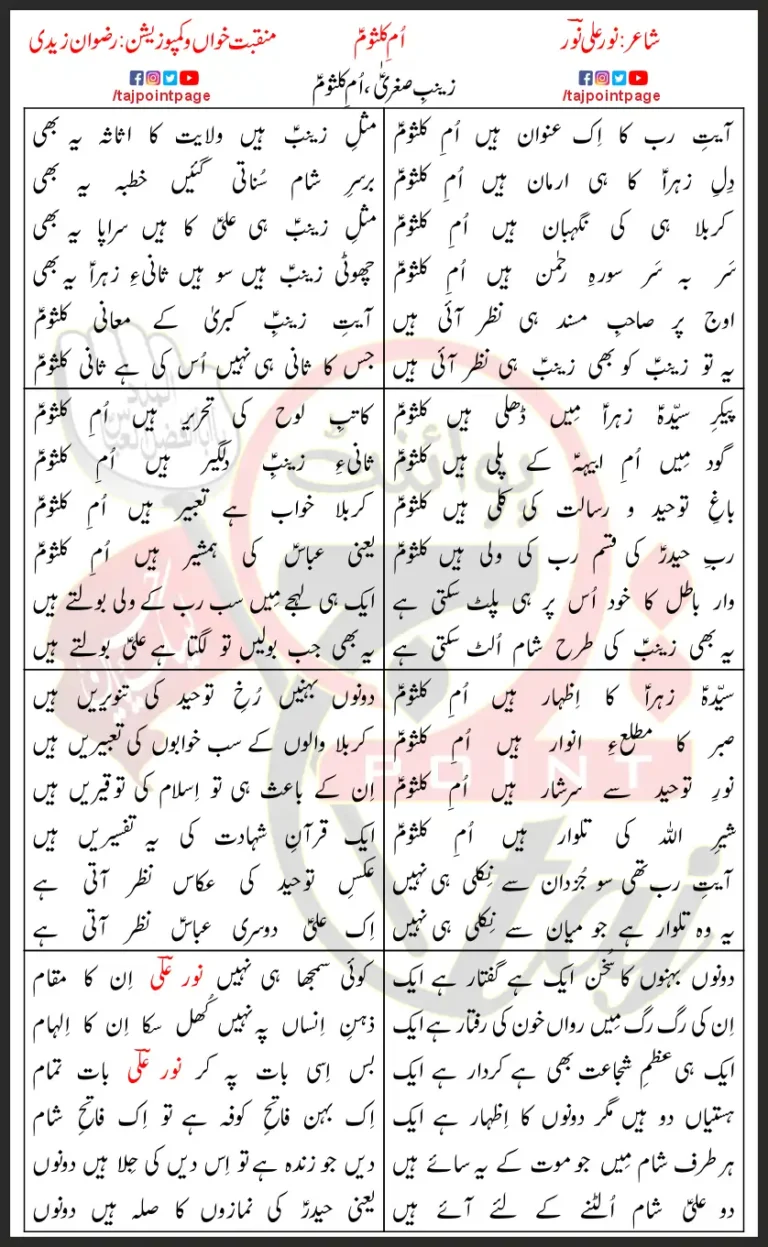 شاعر: نور علی نورؔ
اُمِ کلثومؑ
منقبت خواں و کمپوزیشن: رضوان زیدی
/tajpointpage
زینبِ صغریٰؑ، اُمِ کلثومؑ
/tajpointpage
آیتِ رب کا اِک عنوان ہیں اُمِ کلثومؑ
دِلِ زہراؑ کا ہی ارمان ہیں اُمِ کلثومؑ
کربلا ہی کی نگہبان ہیں اُمِ کلثومؑ
سَر بہ سَر سورہِ رحمٰن ہیں اُمِ کلثومؑ
اوج پر صاحبِ مسند ہی نظر آئی ہیں
یہ تو زینبؑ کو بھی زینبؑ ہی نظر آئی ہیں
مثلِ زینبؑ ہیں ولایت کا اثاثہ یہ بھی
برسرِ شام سُناتی گئیں خطبہ یہ بھی
مثلِ زینبؑ ہی علیؑ کا ہیں سراپا یہ بھی
چھوٹی زینبؑ ہیں سو ہیں ثانیءِ زہراؑ یہ بھی
آیتِ زینبِؑ کبریٰ کے معانی کلثومؑ
جس کا ثانی ہی نہیں اُس کی ہے ثانی کلثومؑ
پیکرِ سیّدہؑ زہراؑ مِیں ڈھلی ہیں کلثومؑ
گود مِیں اُمِ ابیہہؑ کے پلی ہیں کلثومؑ
باغِ توحید و رسالت کی کلی ہیں کلثومؑ
ربِ حیدرؑ کی قسم رب کی ولی ہیں کلثومؑ
وار باطل کا خود اُس پر ہی پلٹ سکتی ہے
یہ بھی زینبؑ کی طرح شام اُلٹ سکتی ہے
کاتبِ لوح کی تحریر ہیں اُمِ کلثومؑ
ثانیءِ زینبِؑ دلگیر ہیں اُمِ کلثومؑ
کربلا خواب ہے تعبیر ہیں اُمِ کلثومؑ
یعنی عباسؑ کی ہمشیر ہیں اُمِ کلثومؑ
ایک ہی لہجے مِیں سب رب کے ولی بولتے ہیں
یہ بھی جب بولیں تو لگتا ہے علیؑ بولتے ہیں
سیّدہؑ زہراؑ کا اِظہار ہیں اُمِ کلثومؑ
صبر کا مطلعءِ انوار ہیں اُمِ کلثومؑ
نورِ توحید سے سرشار ہیں اُمِ کلثومؑ
شیرِ اللہ کی تلوار ہیں اُمِ کلثومؑ
آیتِ رب تھی سو جُزدان سے نِکلی ہی نہیں
یہ وہ تلوار ہے جو میان سے نِکلی ہی نہیں
دونوں بہنیں رُخِ توحید کی تنویریں ہیں
کربلا والوں کے سب خوابوں کی تعبیریں ہیں
اِن کے باعث ہی تو اِسلام کی توقیریں ہیں
ایک قرآنِ شہادت کی یہ تفسیریں ہیں
عکسِ توحید کی عکاس نظر آتی ہے
اِک علیؑ دوسری عباسؑ نظر آتی ہے
دونوں بہنوں کا سُخن ایک ہے گفتار ہے ایک
اِن کی رگ رگ مِیں رواں خون کی رفتار ہے ایک
ایک ہی عظمِ شجاعت بھی ہے کردار ہے ایک
ہستیاں دو ہیں مگر دونوں کا اِظہار ہے ایک
ہر طرف شام مِیں جو موت کے یہ سائے ہیں
دو علیؑ شام اُلٹنے کے لئے آئے ہیں
کوئی سمجھا ہی نہیں نور علیؔ اِن کا مقام
ذہنِ اِنساں پہ نہیں کُھل سکا اِن کا اِلہام
بس اِسی بات پہ کر نور علیؔ بات تمام
اِک بہن فاتحِ کوفہ ہے تو اِک فاتحِ شام
دیں جو زندہ ہے تو اِس دیں کی جِلا ہیں دونوں
یعنی حیدرؑ کی نمازوں کا صلہ ہیں دونوں